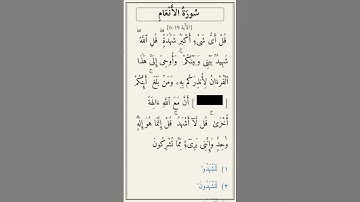 سُورَةُ الأَنْعَامِ
[الآية 19 :6]
قُلْ أَىُّ شَىْءٍ أَكْبَرُ شَهَٰدَةً ۖ قُلِ ٱللَّهُ ۖ
شَهِيدٌۢ بَيْنِى وَبَيْنَكُمْ ۚ وَأُوحِىَ إِلَىَّ هَٰذَا
ٱلْقُرْءَانُ لِأُنذِرَكُم بِهِۦ وَمَنۢ بَلَغَ ۚ أَئِنَّكُمْ
[ ] أَنَّ مَعَ ٱللَّهِ ءَالِهَةً
أُخْرَىٰ ۚ قُل لَّآ أَشْهَدُ ۚ قُلْ إِنَّمَا هُوَ إِلَٰهٌ
وَٰحِدٌ وَإِنَّنِى بَرِىٓءٌ مِّمَّا تُشْرِكُونَ
١) لَتَشْهَدُو
٢) لَتَشْهَدُونَ